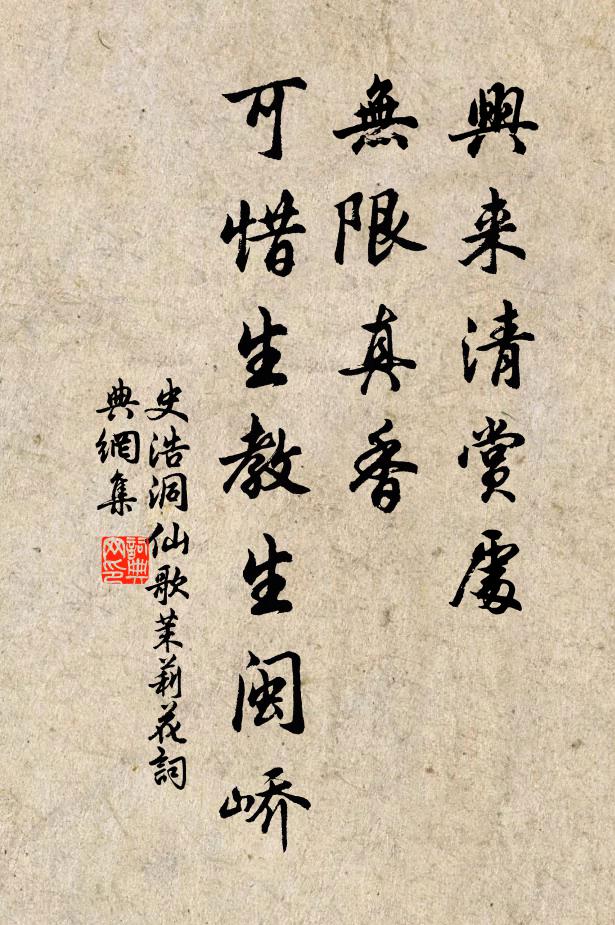 興来清賞處
無限真香
可惜生教生閩嶠
史浩洞仙歌茉莉花詞
典網集
詞典
网印